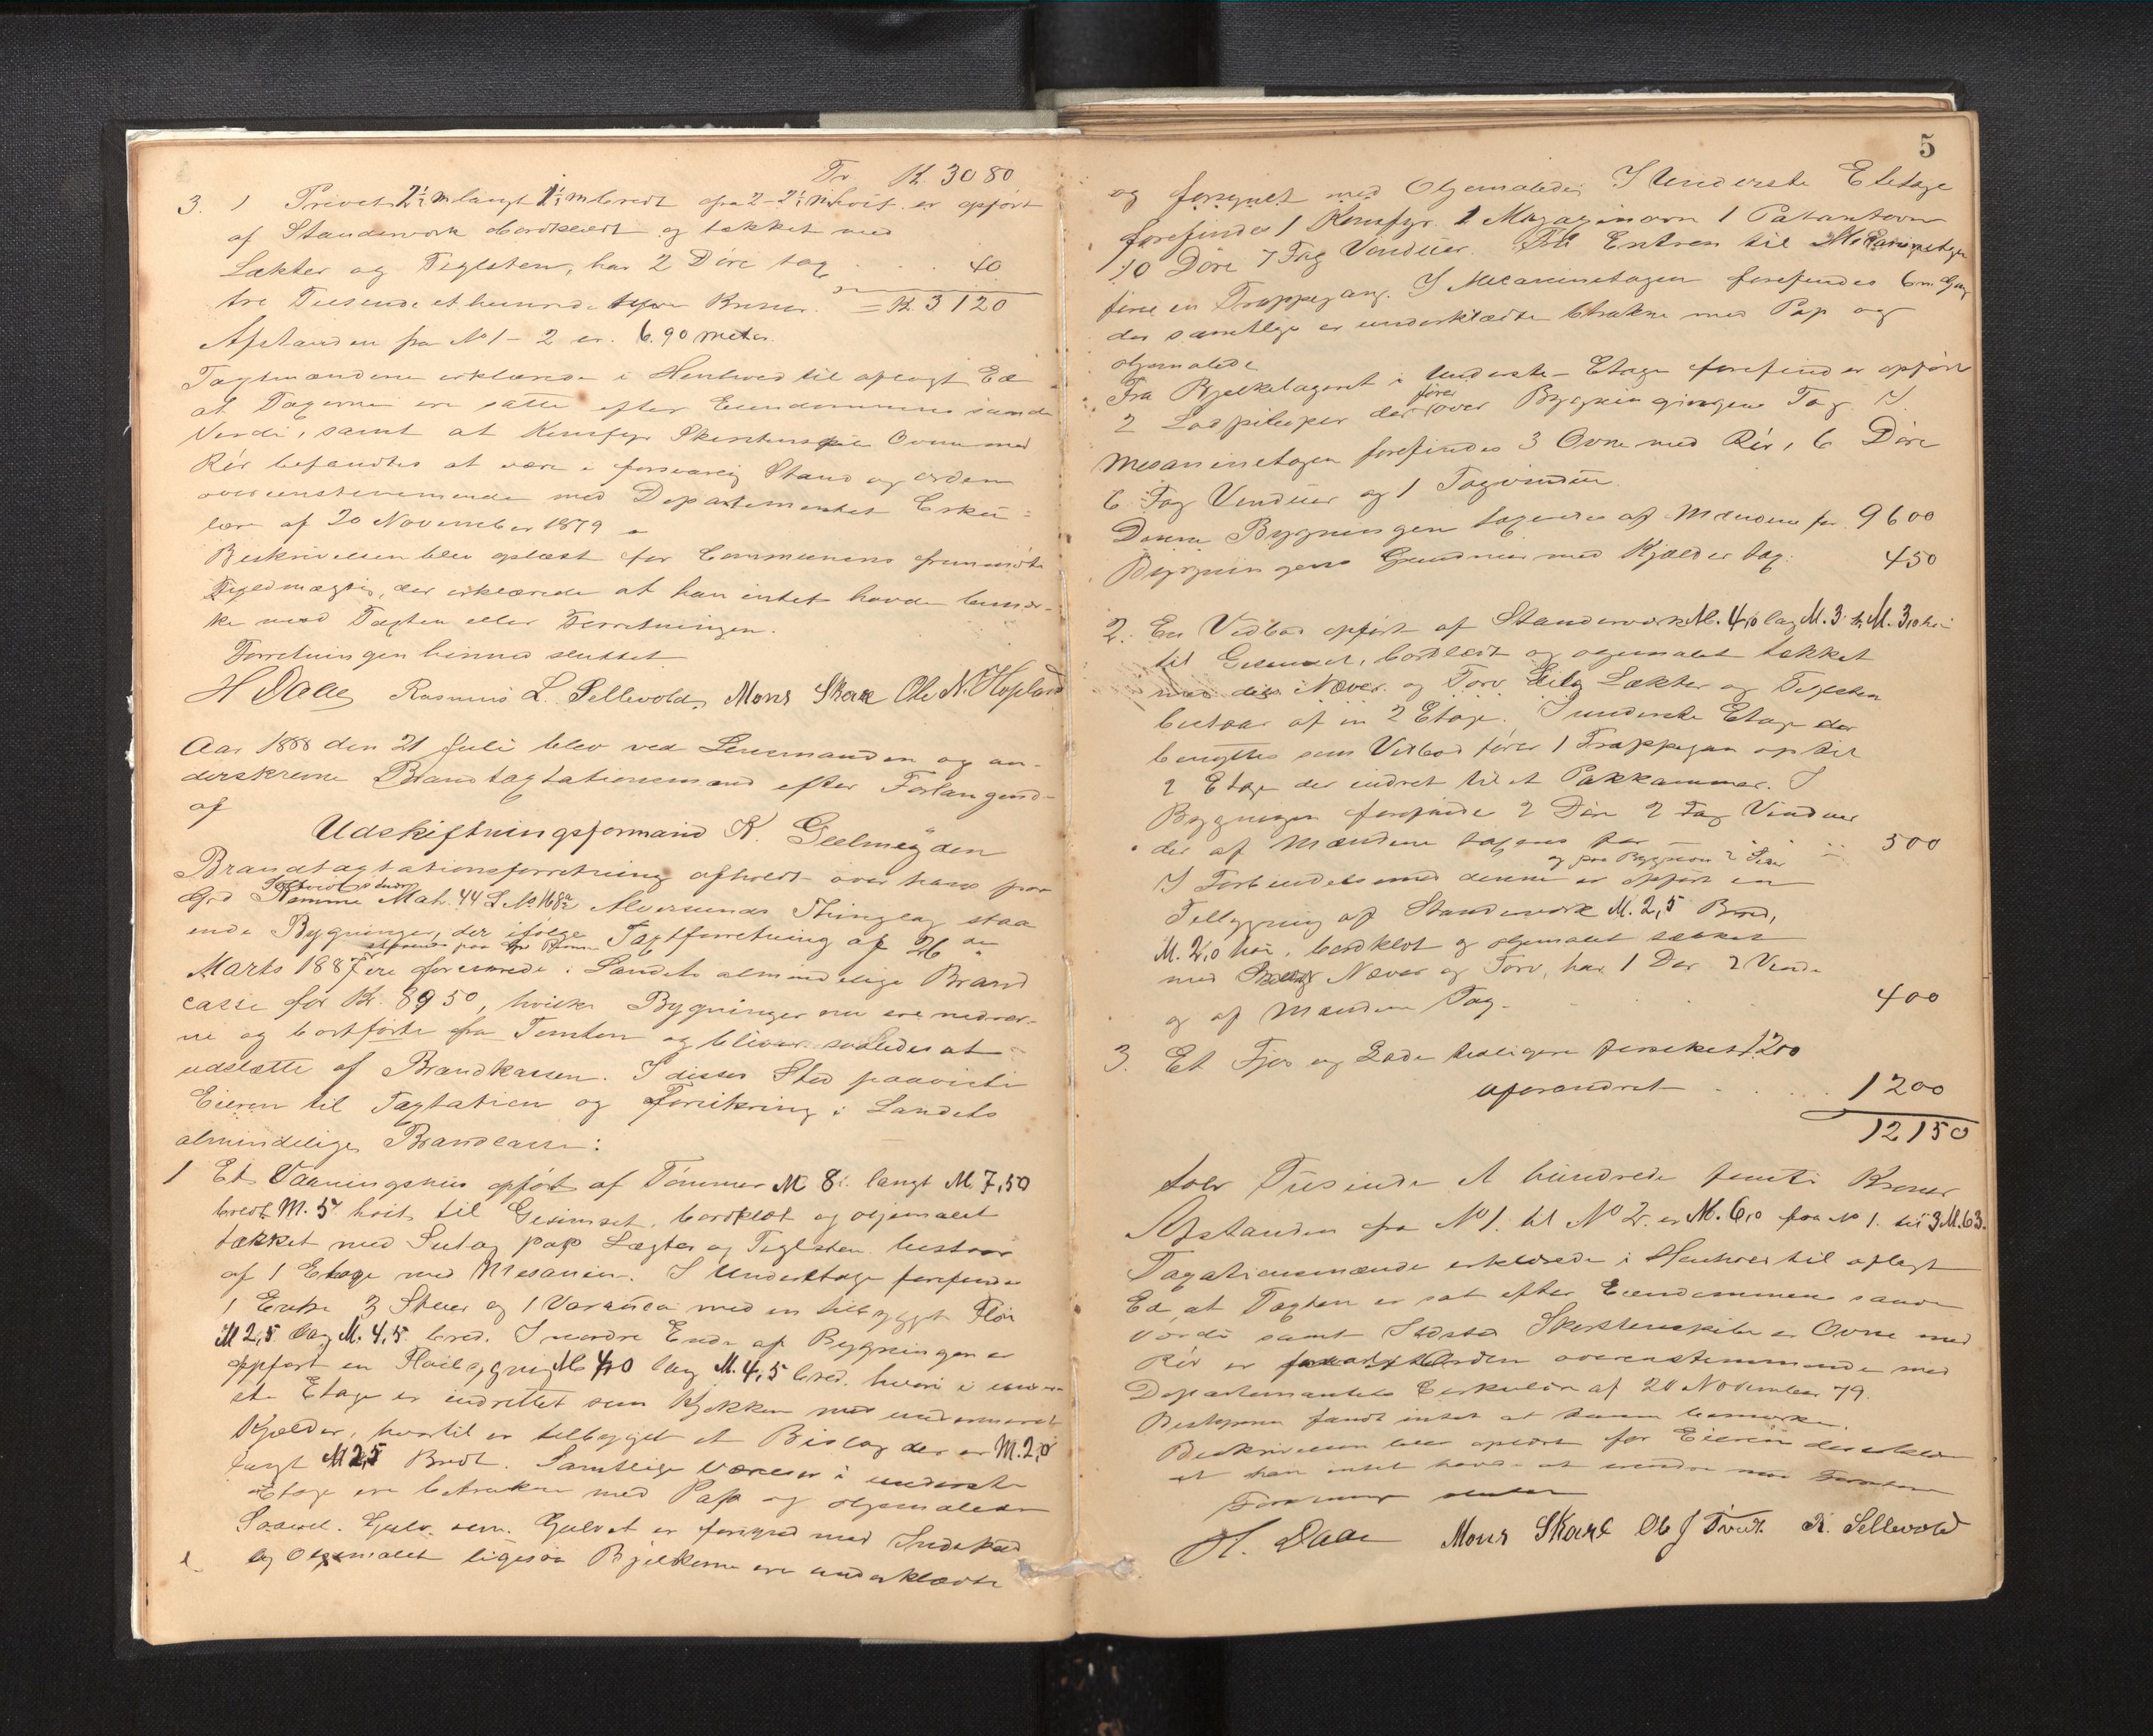 Tr. Kr. 3080
3. 1 Privet 2½ m langt 1½ m bredt fra 2-2½ m høit er opført
af Standerværk bordklædt og tækket med
Lækter og Teglsten, har 2 Døre tag. . . . 40
tre Tusende et hunrde tyve Kroner. = Kr. 3120
Afstanden fra No 1 - 2 er. 6.90 meter.
Taxtmændene erklærede i Henhold til aflagt Ed
at Taxterne ere satte efter Eiendommens sande
Verdi, samt at Komfyr Skorstenspiber Ovne med
Rør befandtes at være i forsvarlig Stand og orden
overenstemmende med Departementet Cirku-
lære af 20 November 1879
Beskrivelsen blev oplæst for Communens fremmødte
Fuldmægtig, der erklærede at han intet havde bemær-
ke mod Taxten eller Forretningen.
Forretningen hermed sluttet
H Daae Rasmus L. Sellevold, Mons Skare Ole N. Hopland
Aar 1888 den 21 Juli blev ved Lensmanden og un-
derskrevne Brandtaxtationsmænd efter Forlangend-
af
Udskiftningsformand K. Geelmüyden
Brandtaxtationsforretning afholdt over hans paa
Grd Mat. 44 L No 168a Alversunds Thinglag staa
ende Bygninger, der ifølge Taxtforretning af 26 de
Marts 1887 ere forsikrede i Landets almindelige Brand
casse for Kr. 8950, hvilke Bygninger nu ere nedrev-
ne og bortførte fra Tomten og bliver saaledes at
udslætte af Brandkassen. I disses Sted paaviste
Eieren til Taxtation og Forsikring i Landets
almindelige Brandcasse:
1 Et Vaaningshus opført af Tømmer M 8.. langt M 7,50
bredt M. 5 høit til Gesimset, bordklæt og oljemalet
tækket med Sutag pap Lægter og Teglsten. bestaar
af 1 Etage med Mesanin. I Underetage forefindes
1 Entre 3 Stuer og 1 Varanda med en tilbygget Fløi
M 2,5 lang M. 4,5 bred. I nordre Ende af Bygningen er
oppført en Fløibygning M 4,0 lang M. 4,5 bred. hvori i under-
ste Etage er indrettet som Kjøkken med undermuret
Kjælder, hvortil er tilbygget et Bislag der er M. 2,0
langt M 2,5 Bredt. Samtlige Værelser i underste
Etage ere betrukne med Pap og oljemalede
Gulvet er forsynet med
og Oljemalet ligesaa Bjelkerne ere underklædte
5
og forsynet med Oljemaledes I Underste Etetage
forefindes 1 Komfyr. 1 Magazinovn 1 Patantovn
10 Døre 7 Fag Vinduer. Fra Entren til Mesaninetagen
fører en Trappegang. I Mecaninetagen forefindes 6
der samtlige er underklædte betrukne med Pap og
oljemalede
Fra Bjelkelageret i Underste Etage forefindes opført
2 der fører over Bygningingens Tag. I
Mesaninetagen forefindes 3 Ovne med Rør, 6 Døre
6 Fag Vinduer og 1 Tagvindu.
Denne Bygningen taxeres af Mændene for 9600
Bygningens Grundmur med Kjælder tag. 450
2. En Vedbod opført af Standerværk M. 4,0 lag M. 3 b. M. 3,0 høi
til Gesimset, bordklædt og oljemalet tækket
med dels Næver og Torv dels Lækter og Teglsten
bestaar af in 2 Etage. I underste Etage der
benyttes som Vedbod fører 1 Trappegan op til
2 Etage der indret til et Pakkammer. I
Bygningen forefinde 2 Døre 2 Fag Vinduer
der af Mændene taxeres for 500
og paa Bygnin
I Forbindelse med denne er opført en
Tilbygning af Standerværk M. 2,5 Bred,
M. 2,0 høi, bordklæt og oljemalet tækket
med Næver og Torv, har 1 Dør 2 Vindu
og af Mændene Tag. 400
3. Et Fjøs og Lade tidligere forsikret 1200
uforandret . . . . 1200
12150
tolv Tusinde et hundrede femti Kroner
Afstanden fra No 1. til No 2. er M. 6,0 fra No 1. til 3 M. 63.
Taxationsmænde erklærede i Henhold til aflagt
Ed at Taxten er sat efter Eiendommens sande
Værdi samt Ildsted Skorstenspiber Ovne med
Rør er forsvarlig Orden overenstemmende med
Departementets Cirkulær af 20 November 79.
fandt intet at bemærke.
Beskrivelsen blev oplæst for Eieren der erklær
at han intet havde at erindre mod
Forretning sluttet
H. Daae Mons Skare Ole J Tveit R. Sellevold